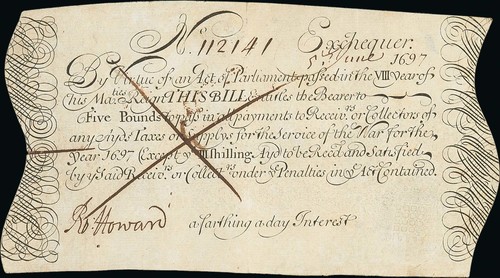 No. 112141 Exchequer.
5 June 1697
By Virtue of an Act of Parliament passed in the VIII Year of
his Maties. Reign THIS BILL Entitles the Bearer to
Five Pounds to pass in all payments to Receivrs. or Collectors of
any Ayds Taxes or Supplys for the Service of the War for the
Year 1697 Except ye IIIShilling Ayd to be Recd. and Satisfied
by ye said Receivrs. or Collectrs. under ye Penalties in ye Act Contained.
Ro: Howard a farthing a day Interest